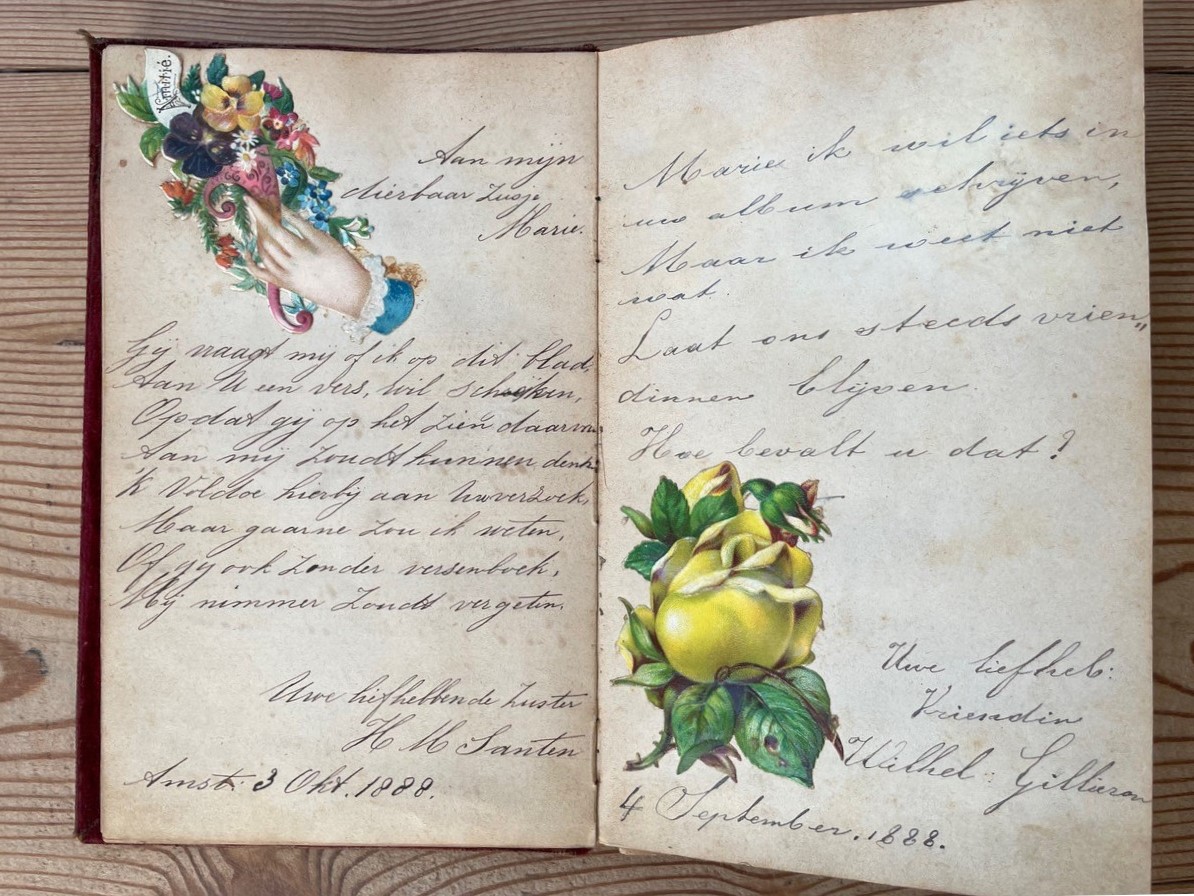 Amitié.
Aan mijn
dierbaar Zusje
Marie.
Gij vraagt mij of ik op dit blad,
Aan U een vers, wil schrijven,
Opdat gij op het zien daarvan
Aan mij Zoudt kunnen denk
'k Voldoe hierbij aan Uw verzoek,
Maar gaarne zou ik weten,
Of gij ook Zonder versenboek,
Mij nimmer Zoudt vergeten.
Uwe liefhebbende Zuster
H M Santen
Amst. 3 Okt. 1888.
Marie ik wil iets in
uw album schrijven,
Maar ik weet niet
wat.
Laat ons steeds vrien„
dinnen blijven.
Hoe bevalt u dat?
Uwe liefheb:
Vriendin
Wilhel: Gillieron
4 September. 1888.